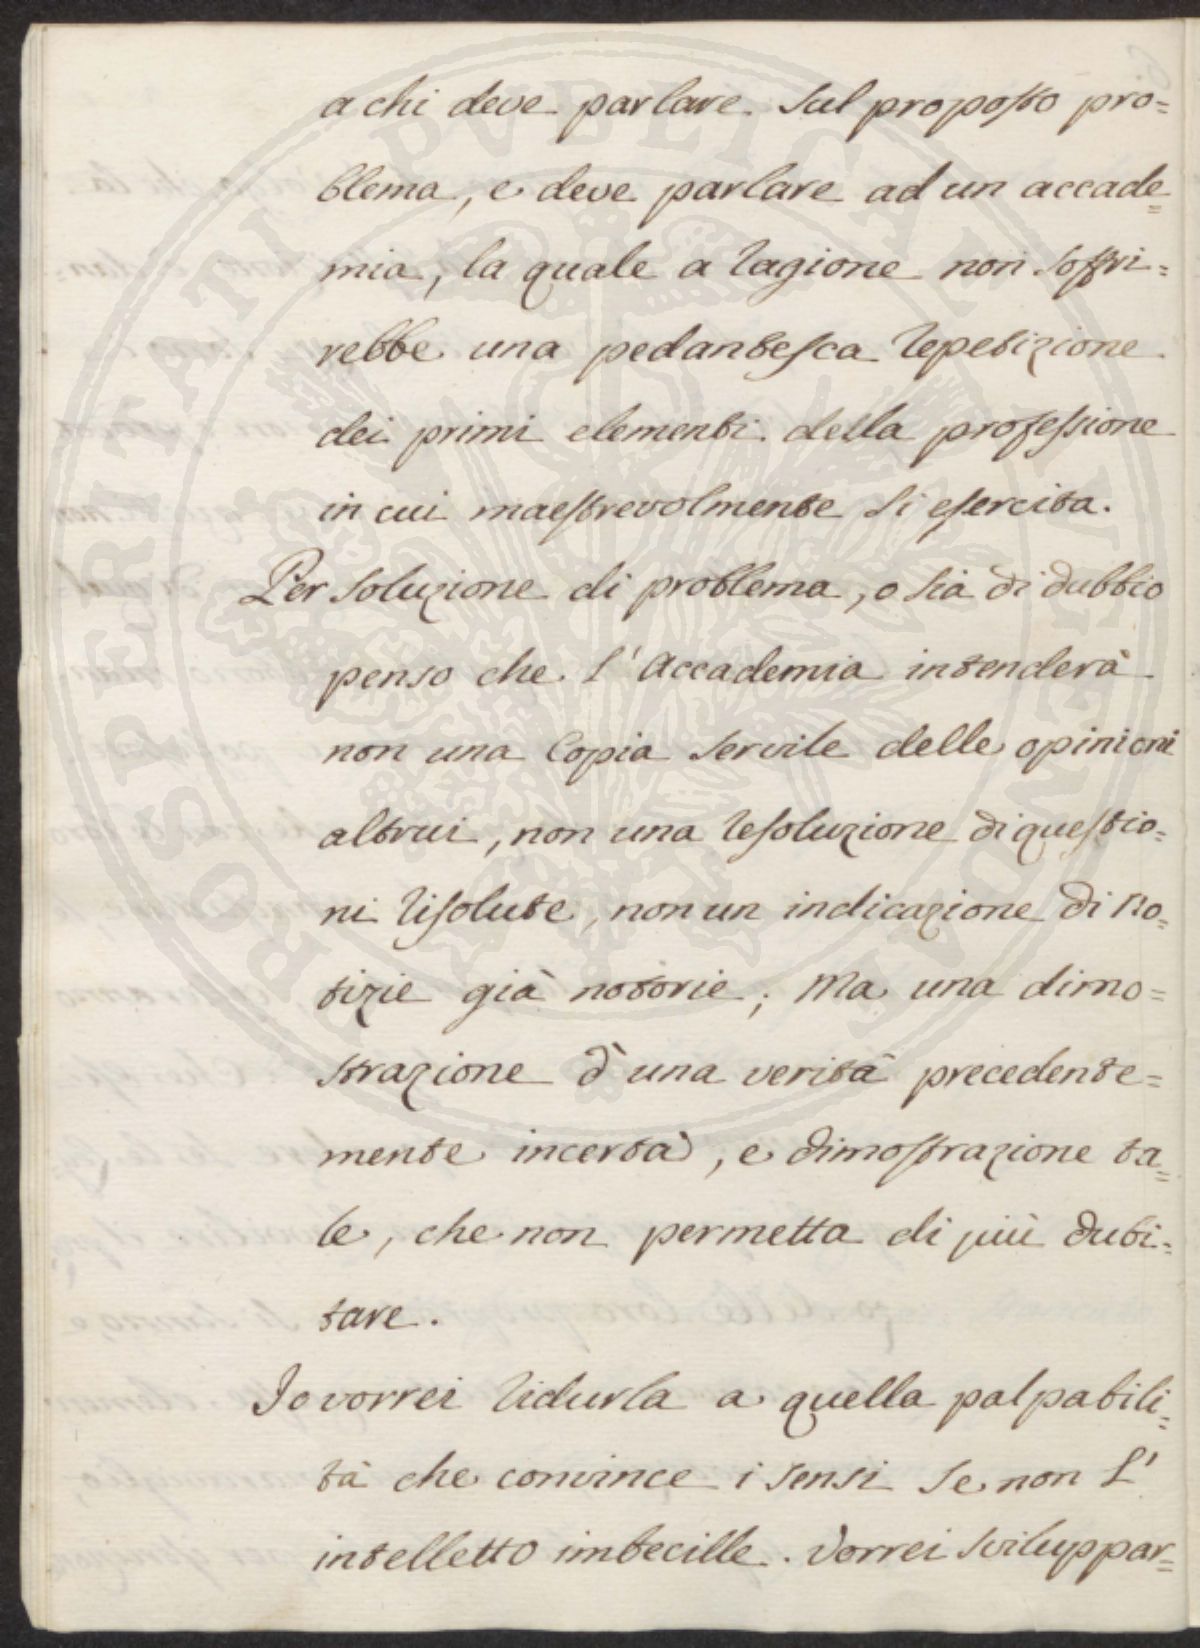 a chi deve parlare sul proposto pro=
blema, e deve parlare ad un accade=
mia, la quale a ragione non soffri=
rebbe una pedantesca repetizione
dei primi elementi della professione
in cui maestrevolmente si esercita.
Per soluzione di problema, o sia di dubbio
penso che l'Accademia intenderà
non una Copia servile delle opinioni
altrui, non una resoluzione di questio=
ni risolute, non un indicazione di no=
tizie già notorie; Ma una dimo=
strazione d'una verità precedente=
mente incerta, e dimostrazione ta=
le, che non permetta di più dubi=
tare.
Io vorrei ridurla a quella palpabili=
tà che convince i sensi se non l'
intelletto imbecille. Vorrei sviluppar=
PROSPERITATI PVBLICAE AVGENDAE